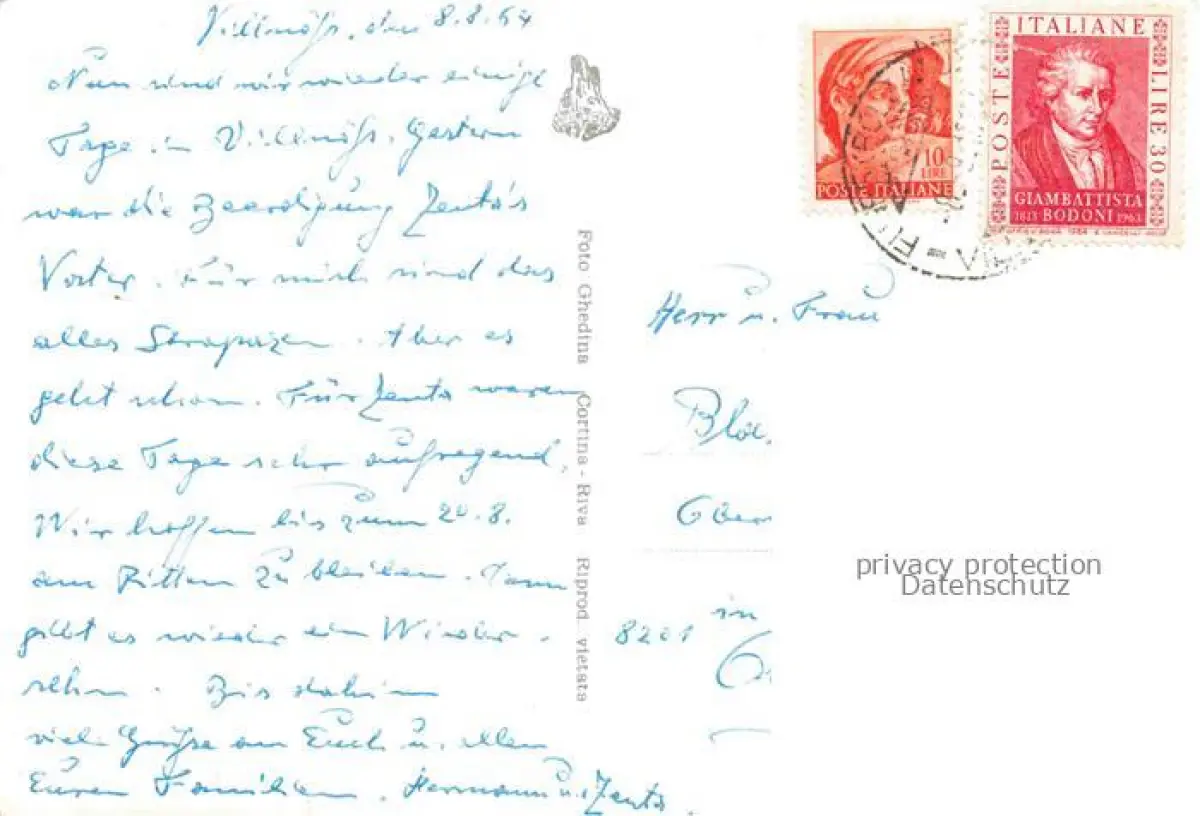 Villnöß, den 8.8.64
Nun sind wir wieder einige
Tage in Villnöß. Gestern
war die Beerdigung Zenta's
Vater. Für mich sind das
alles Strapazen. Aber es
geht schon. Für Zenta waren
diese Tage sehr aufregend.
Wir hoffen bis zum 20.8.
am Ritten zu bleiben. Dann
gibt es wieder ein Wieder-
sehn. Bis dahin
viele Grüße an Euch u. allen
Euren Familien. Hermann u. Zenta.
Foto Ghedina Cortina - Riva Riprod. vietata
10
LIRE
POSTE ITALIANE
POSTE ITALIANE LIRE 30
GIAMBATTISTA
1813 BODONI 1963
Herr u. Frau
Ober
8201 in
privacy protection
Datenschutz